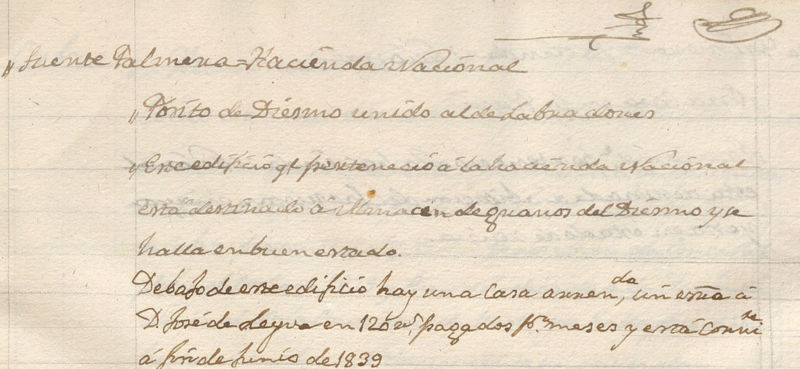 " Fuente Palmera = Hacienda Nacional
" Posito de Diesmo unido al de Labradores
" Ese edificio qe pertenecio a la hacienda Nacional
está destinado á Almacen de granos del Diesmo y se
halla en buen estado.
Debajo de ese edificio hay una casa arrenda,
D José de Leyva en 120 rs pagados pr meses y está
á fin de Junio de 1839